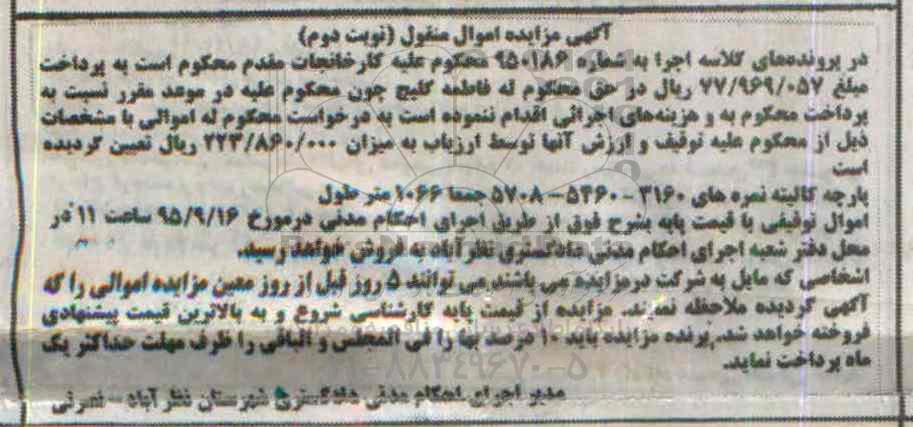 آگهی مزایده اموال منقول (نوبت دوم)
در پرونده‌های کلاسه اجرا به شماره ۹۵۰۱۸۶ محکوم علیه کارخانجات مقدم محکوم است به پرداخت
مبلغ ۷۷/۹۶۹/۰۵۷ ریال در حق محکوم له فاطمه گلیج چون محکوم علیه در موعد مقرر نسبت به
پرداخت محکوم به و هزینه‌های اجرائی اقدام ننموده است به درخواست محکوم له اموالی با مشخصات
ذیل از محکوم علیه توقیف و ارزش آنها توسط ارزیاب به میزان ۲۲۳/۸۶۰/۰۰۰ ریال تعیین گردیده
است
پارچه کالیته نمره های ۳۱۶۰ - ۵۴۶۰ - ۵۷۰۸ جمعا ۱۰۶۶ متر طول
اموال توقیفی با قیمت پایه بشرح فوق از طریق اجرای احکام مدنی درمورخ ۹۵/۹/۱۶ ساعت ۱۱ در
محل دفتر شعبه اجرای احکام مدنی دادگستری نظرآباد به فروش خواهد رسید.
اشخاصی که مایل به شرکت درمزایده می باشند می توانند ۵ روز قبل از روز معین مزایده اموالی را که
آگهی گردیده ملاحظه نمایند. مزایده از قیمت پایه کارشناسی شروع و به بالاترین قیمت پیشنهادی
فروخته خواهد شد. برنده مزایده باید ۱۰ درصد بها را فی المجلس و الباقی را ظرف مهلت حداکثر یک
ماه پرداخت نماید.
۸۸۳۴۹۶۷۰-۵
مدیر اجرای احکام مدنی دادگستری شهرستان نظر آباد - نصرتی